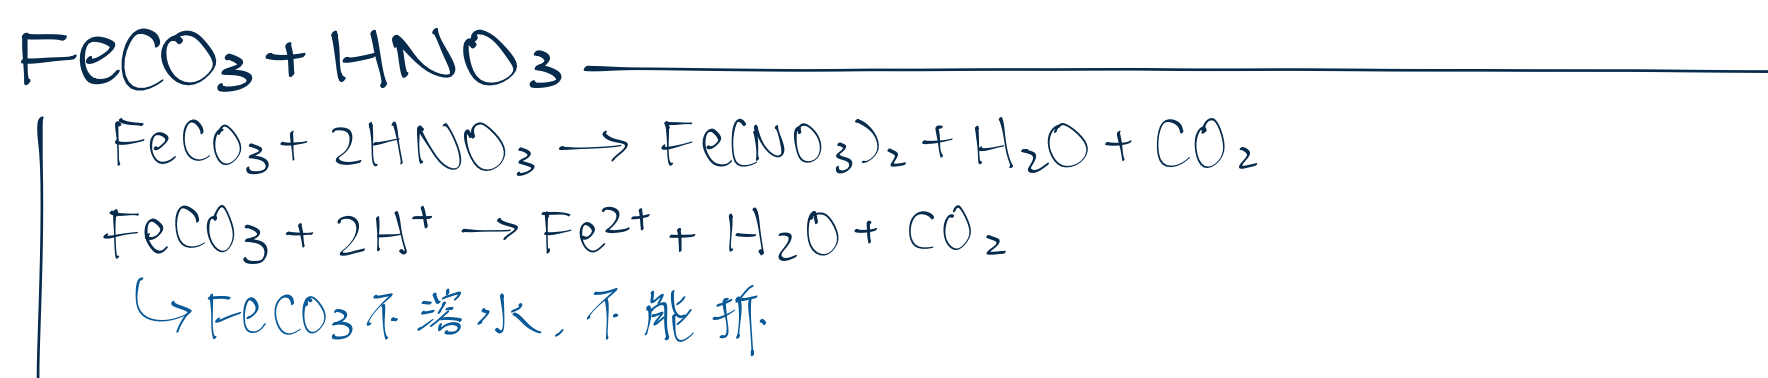 FeCO₃ + HNO₃
FeCO₃ + 2HNO₃ → Fe(NO₃)₂ + H₂O + CO₂
FeCO₃ + 2H⁺ → Fe²⁺ + H₂O + CO₂
↳ FeCO₃不溶水,不能拆.